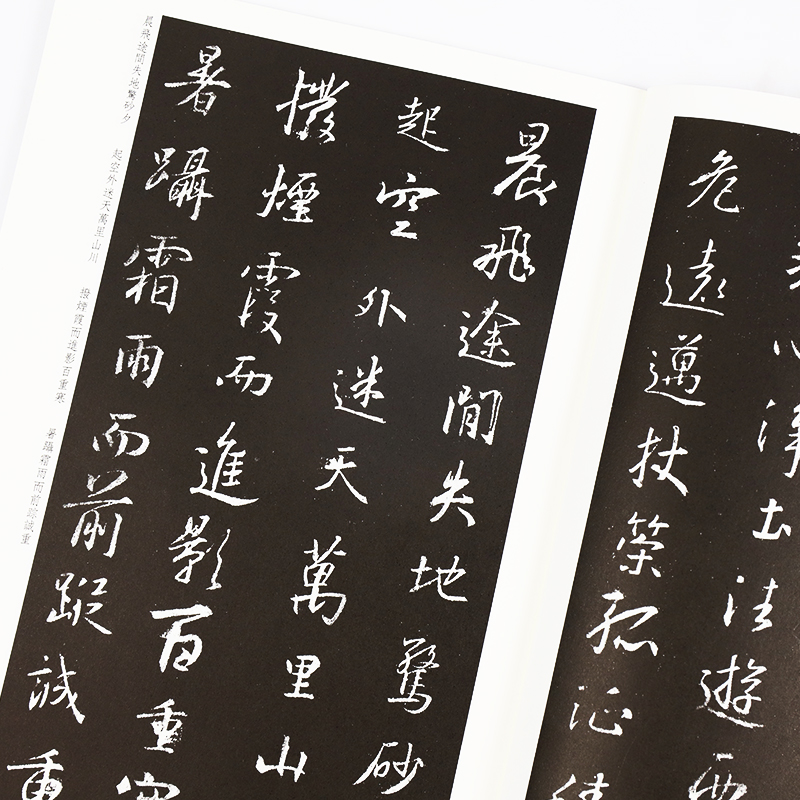 心淨土往遊西
危遠邁杖策孤征積
晨飛途間失地驚砂
起空外迷天萬里山
撥煙霞而進影百重寒
暑躡霜雨而前蹤誠重
晨飛途間失地驚砂夕
起空外迷天萬里山川
撥煙霞而進影百重寒
暑躡霜雨而前蹤誠重